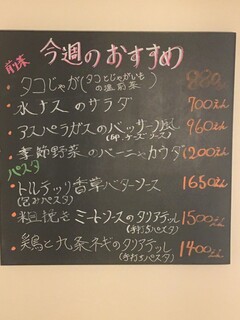 今週のおすすめ
前菜
・タコじゃが(タコとじゃがいもの温前菜)
・水ナスのサラダ 700えん
・アスパラガスのバッサーノ風(卵、チーズソース) 960えん
・季節野菜のバーニャカウダ 1200えん
パスタ
・トルテッリ香草バターソース 1650えん
(包みパスタ)
・粗挽きミートソースのタリアテッレ 1500えん
(手打ちパスタ)
・鶏と九条ネギのタリアテッレ 1400えん
(手打ちパスタ)